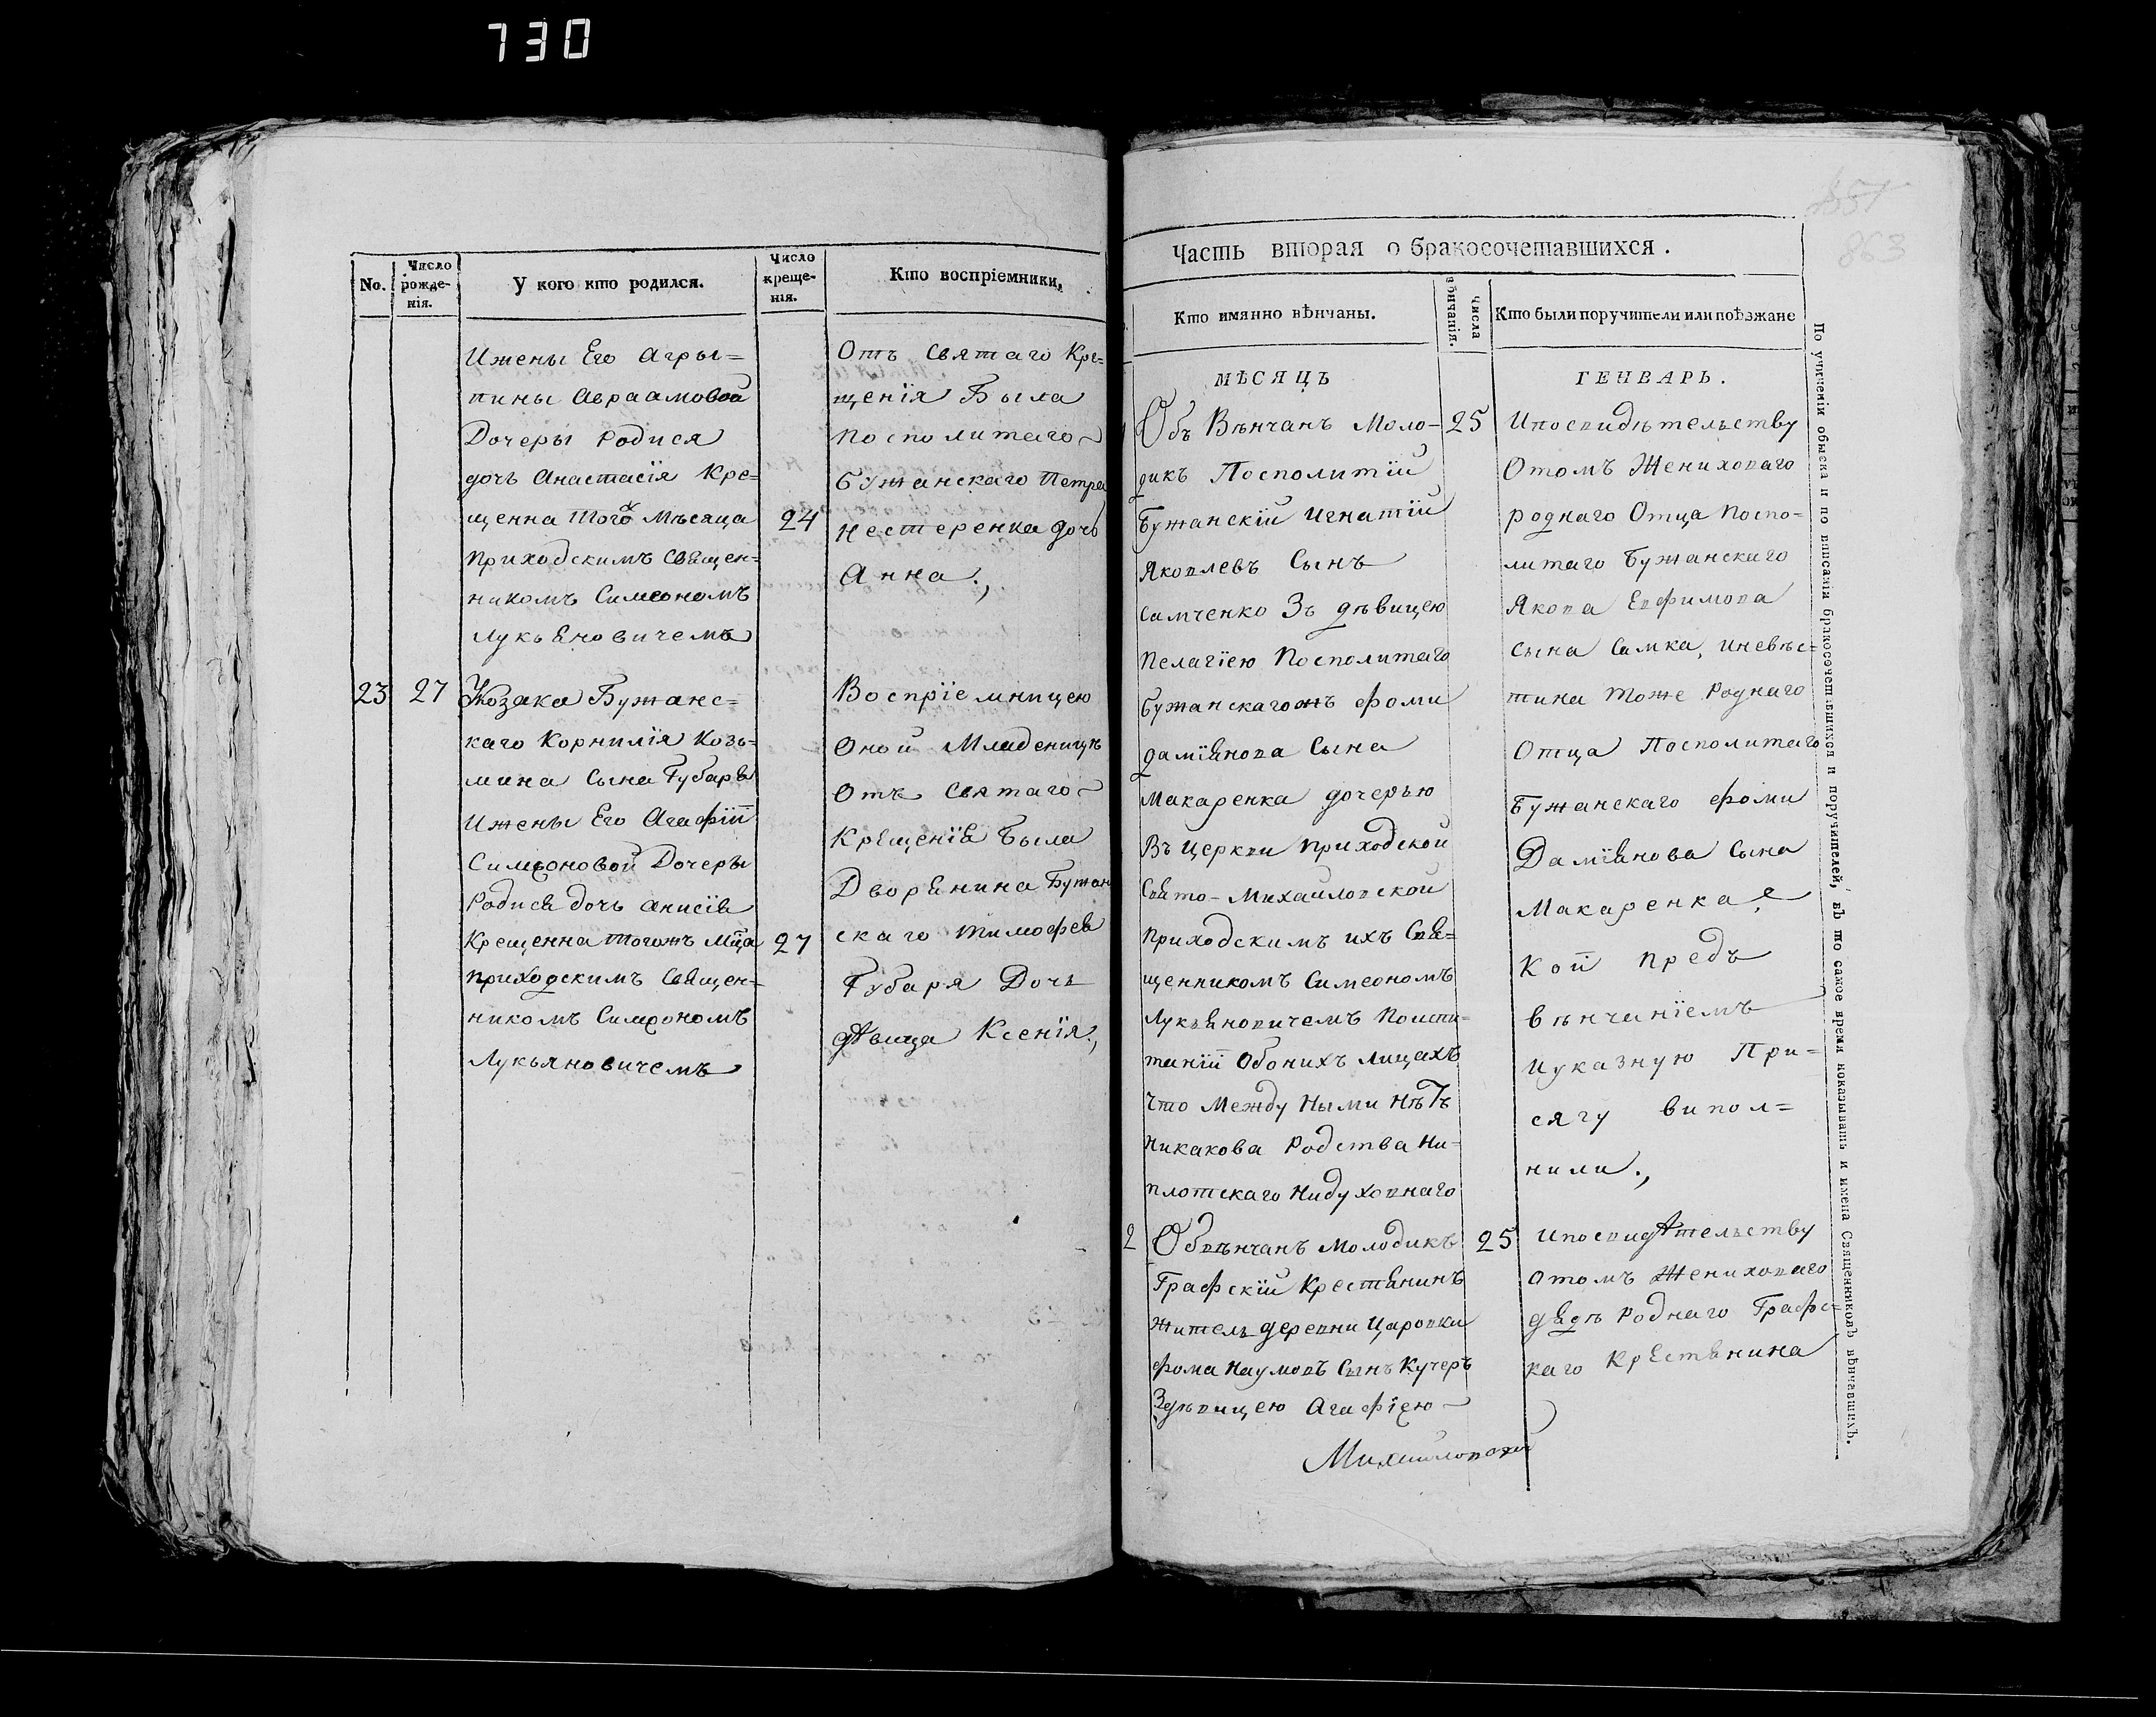 730
No.
Число рожде-нія.
У кого кто родился.
Число креще-нія.
Кто воспріемники,
Ижены Его Агры=
пины Авраамовой
Дочеры Родися
дочь Анастасія Кре=
щенна Того Мѣсяца
24
Приходскимъ Священ=
никомъ Симеономъ
Лукьяновичемъ
Отъ Святаго Кре=
щенія Была
посполитаго
Бужанскаго Петра
Нестеренка дочь
Анна.,
23
27
Козака Бужанс=
каго Корнилія Козь=
мина Сына Губаря
Ижены Его Агафіи
Симеоновой Дочеры
Родися дочь Анисія
Крещенна тогожъ Мца
27
приходскимъ Священ=
никомъ Симеономъ
Лукьяновичемъ
Воспріемницею
Оной Младеницѣ
Отъ Святаго
Крещенія Была
Дворянина Бужан
скаго Тимофея
Губаря Дочь
дѣвица Ксенія.,
863
Часть вторая о бракосочетавшихся.
Кто имянно вѣнчаны.
числа вѣнчанія.
Кто были поручители или поѣзжане
МѢСЯЦЪ
ГЕНВАРЬ.
Объ Вѣнчанъ Моло-
25
дикъ Посполитій
Бужанскій Игнатій
Яковлевъ Сынъ
Самченко Зъ дѣвицею
Пелагіею Посполитаго
Бужанскагожъ фоми
даміянова Сына
Макаренка дочерью
Въ Церкви приходской
Свято-Михайловской
Приходскимъ ихъ Свя=
щенникомъ Симеономъ
Лукьяновичемъ Поиспи-
таніи Обоихъ лицахъ
Что Между Ными нѣтъ
Никакова Родства Ни-
плотскаго Нидуховнаго
Ипосвидѣтельству
Отомъ Жениховаго
роднаго Отца Поспо-
литаго Бужанскаго
Якова Евфимова
сына Самка, иневѣс=
тина тоже Роднаго
Отца Посполитаго
Бужанскаго фоми
Даміянова Сына
Макаренка,
Кои предъ
вѣнчаніемъ
иуказную При=
сягу випол=
нили.,
2
Обвѣнчанъ Молодикъ
25
Графскій Крестянинъ
житель деревни Царовки
фома Наумовъ Сынъ Кучеръ
Здѣвицею Агафіею
Михайловской
ипосвидѣтельству
отомъ Жениховаго
дядѣ Роднаго Графс=
каго Крестянина
По учиненіи обыска и по вписаніи бракосочетавшихся и поручителей, въ то самое время показывать и имена Священниковъ вѣнчавшихъ.